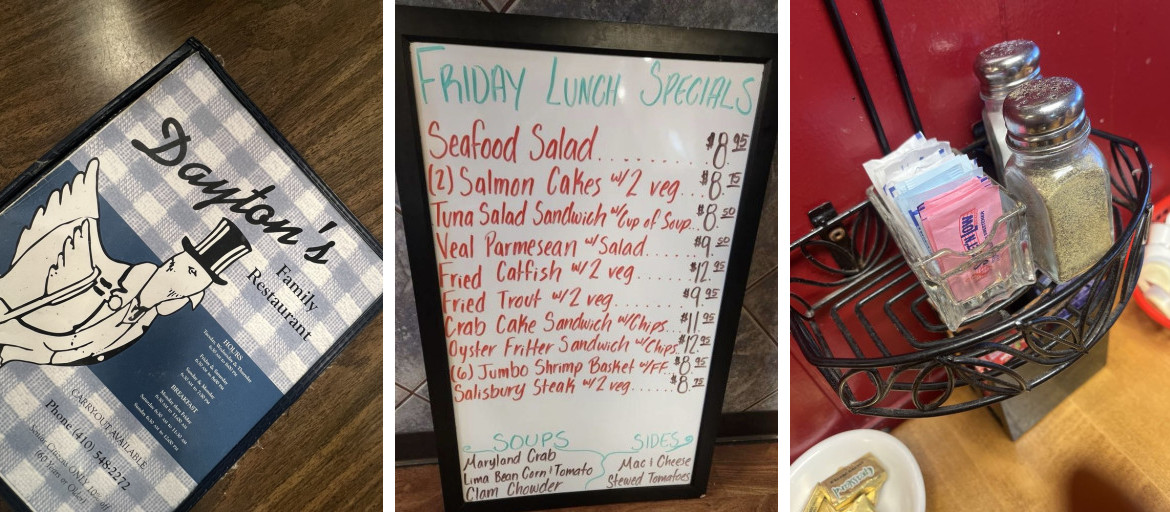 Dayton's
Family
Restaurant
HOURS
BREAKFAST
CARRY-OUT AVAILABLE
Phone (410) 548-2272
FRIDAY LUNCH SPECIALS
Seafood Salad........ $8.95
(2) Salmon Cakes w/2 veg.. $8.75
Tuna Salad Sandwich w/Cup of Soup.. $8.50
Veal Parmesean w/Salad..... $9.50
Fried Catfish w/2 veg....... $12.95
Fried Trout w/2 veg........ $9.95
Crab Cake Sandwich w/Chips... $11.95
Oyster Fritter Sandwich w/Chips.. $12.95
(6) Jumbo Shrimp Basket w/FF.. $8.95
Salisbury Steak w/2 veg...... $8.75
SOUPS
Maryland Crab
Lima Bean Corn & Tomato
Clam Chowder
SIDES
Mac & Cheese
Stewed Tomatoes